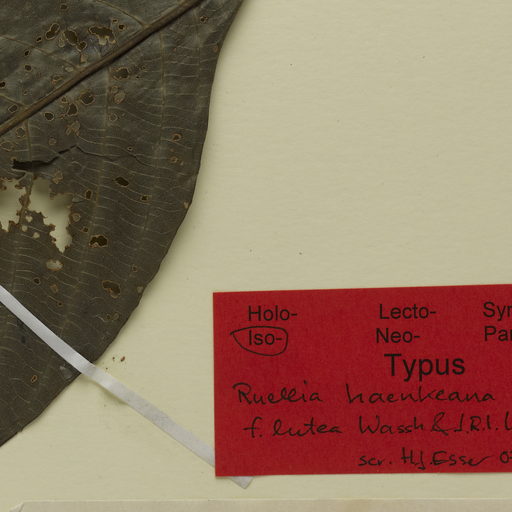 Holo- Lecto- Syn
Iso- Neo- Par
Typus
Ruellia haenkeana
f. lutea Wassh & J.R.I.
scr. H.J. Esser